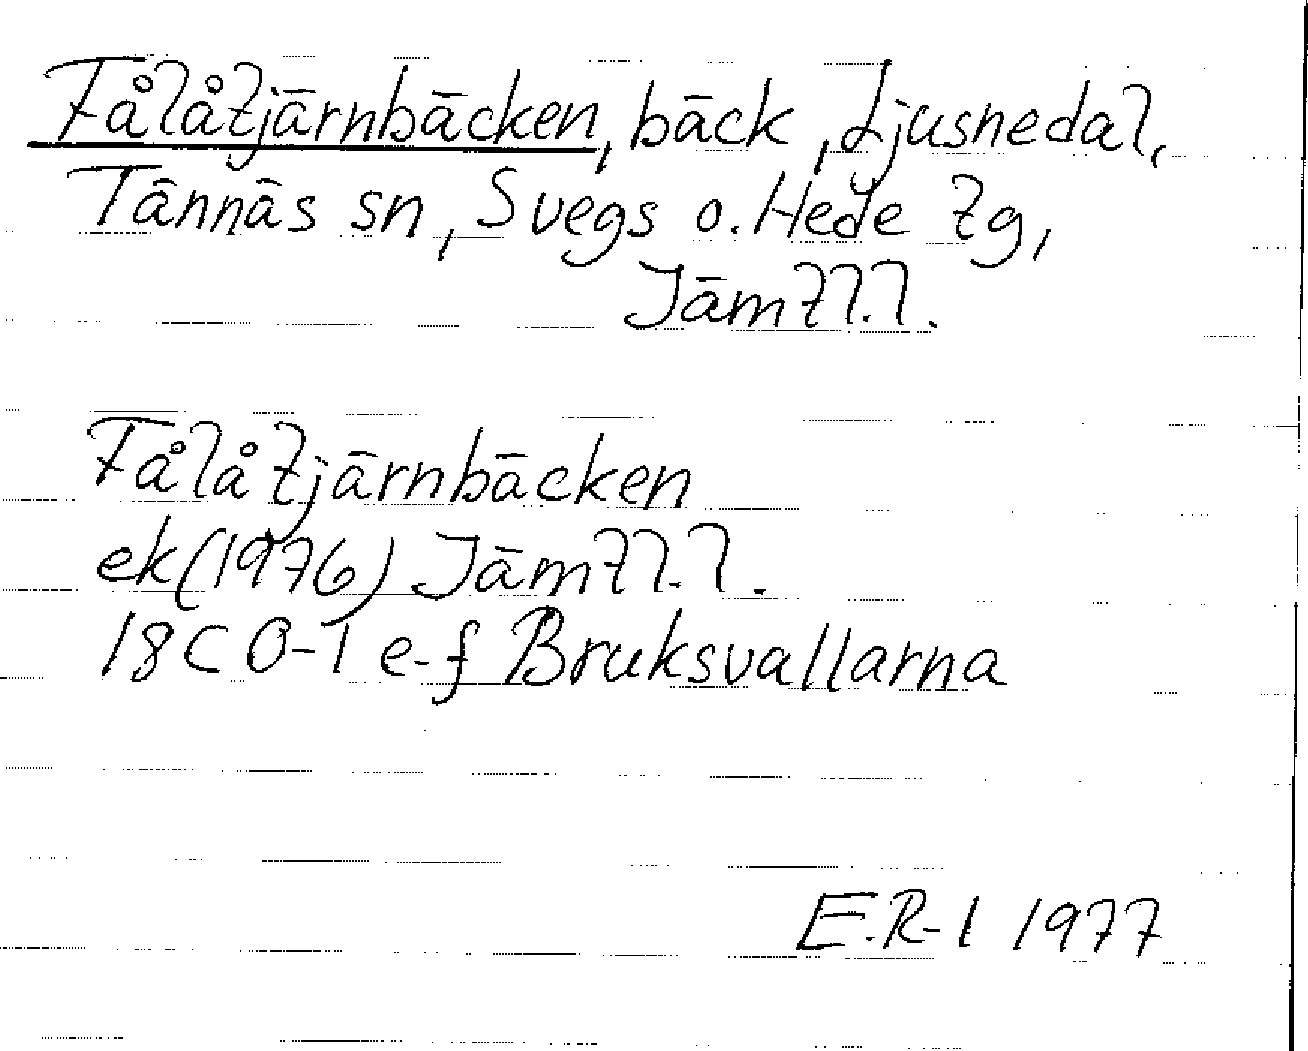 Fålåtjärnbäcken, bäck, Ljusnedal,
Tännäs sn, Svegs o. Hede tg,
Jämtl.l.
Fålåtjärnbäcken
ek (1976) Jämtl.l.
18C 0-1 e-f Bruksvallarna
E.R-l 1977